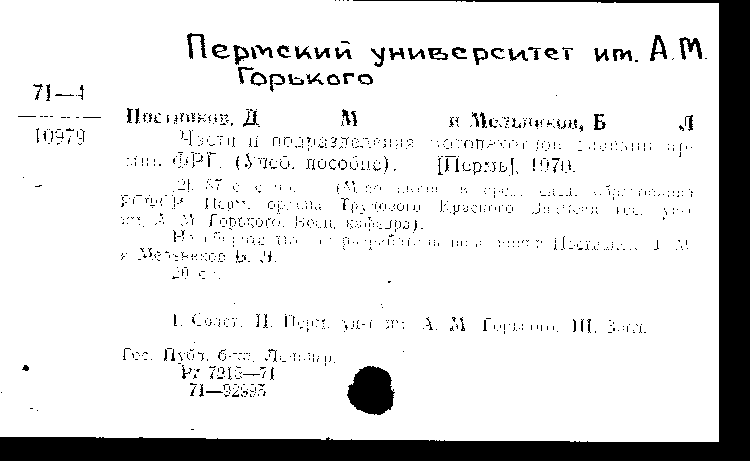 Пермский университет им. А.М.
Горького
71—4
10979
Постников, Д М и Мельников, Б Л
Части и подразделения мотопехотной дивизии ар-
мии ФРГ. (Учеб. пособие). [Пермь], 1970.
87 с. с (М-во высш. и сред. спец. образования
РСФСР. Перм. ордена Трудового Красного Знамени гос. ун-т
им. А. М. Горького. Воен. кафедра).
На обороте тит. л. разработали
и Мельников Б. Л.
20 к.
I. Сост. II. Перм. ун-т им. А. М. Горького. III. Загл.
Гос. Публ. б-ка. Ленингр.
Рг 7218—71
71—92995